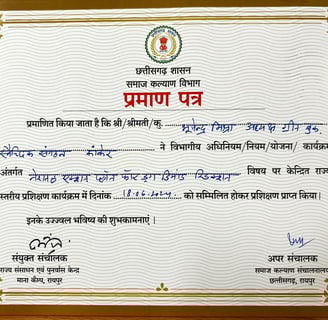 छत्तीसगढ़ शासन
समाज कल्याण विभाग
प्रमाण पत्र
प्रमाणित किया जाता है कि श्री/श्रीमती/कु. भूपेन्द्र मिश्रा अध्यक्ष ग्रीन
स्वैच्छिक संगठन कांकेर ने विभागीय अधिनियम/नियम/योजना/ कार्यक्रम
अंतर्गत नेशनल एक्शन प्लॉन फॉर ड्रग डिमांड रिडक्शन विषय पर केन्द्रित राज्य
स्तरीय प्रशिक्षण कार्यक्रम में दिनांक 18.06.2024 को सम्मिलित होकर प्रशिक्षण प्राप्त किया।
इनके उज्ज्वल भविष्य की शुभकामनाएं ।
संयुक्त संचालक
राज्य संसाधन एवं पुनर्वास केन्द्र
माना कैम्प, रायपुर
अपर संचालक
समाज कल्याण संचालनालय
छत्तीसगढ़, रायपुर